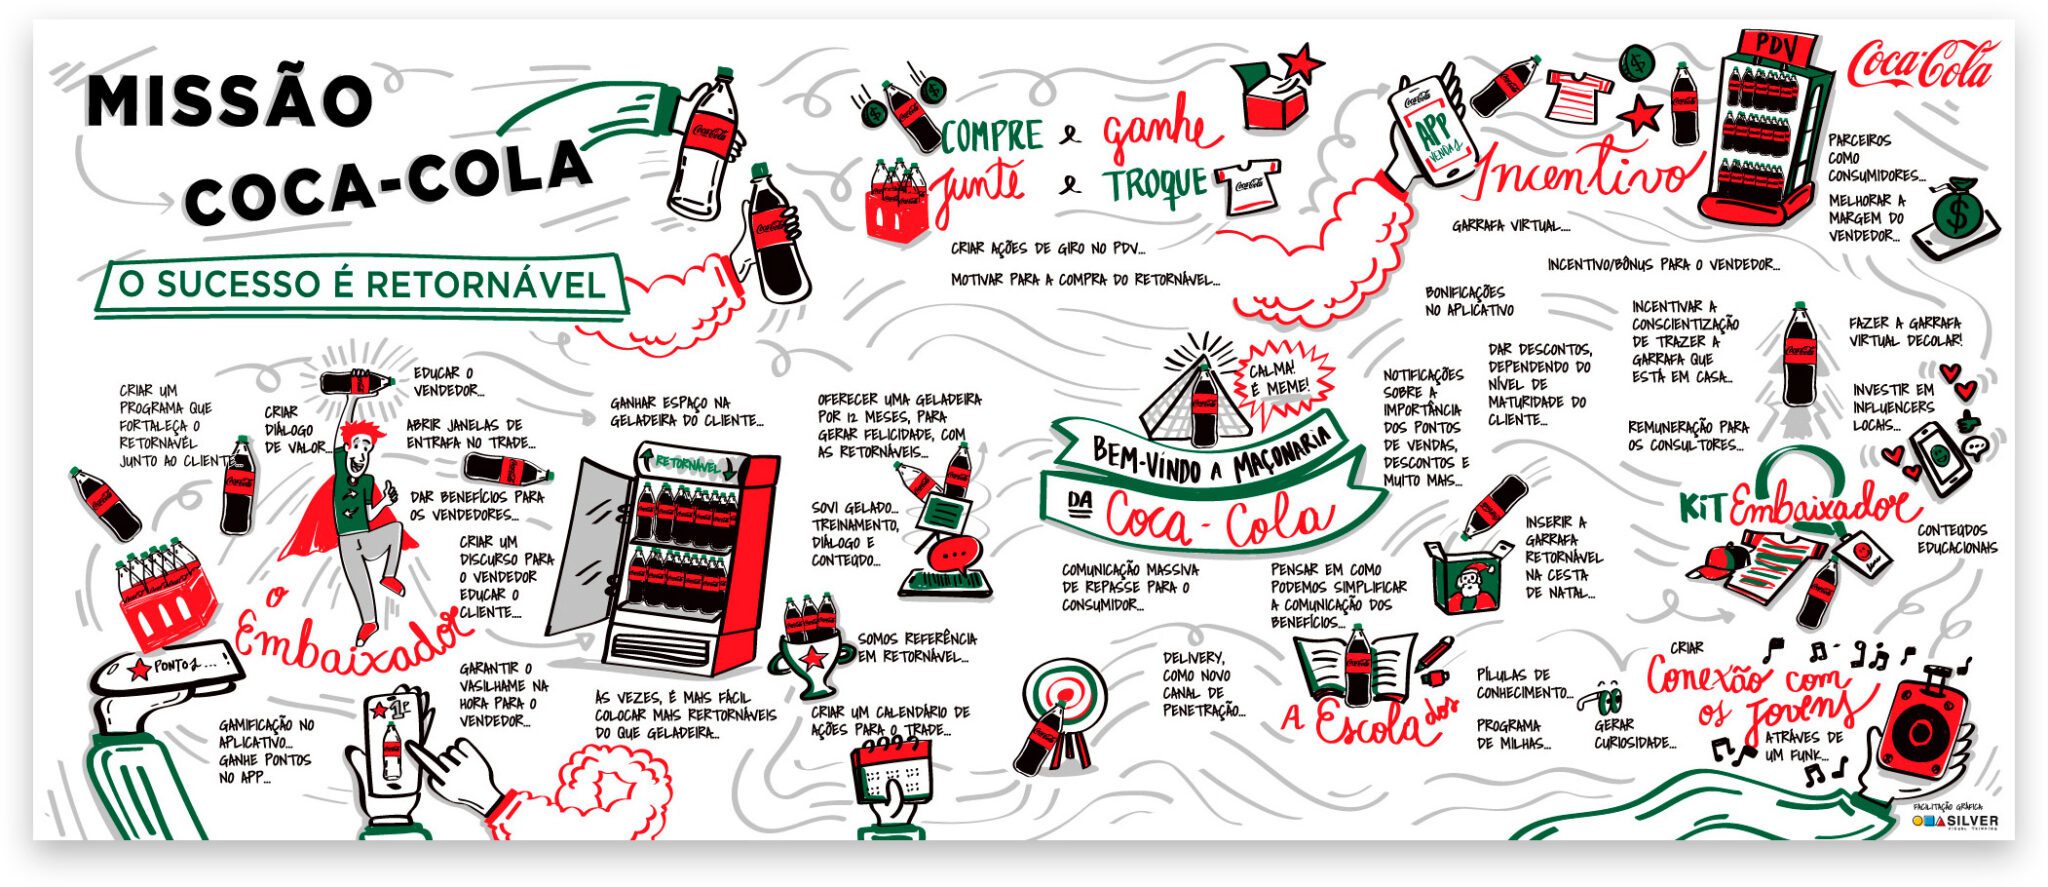 MISSÃO
COCA-COLA
O SUCESSO É RETORNÁVEL
COMPRE e ganhe
junte e TROQUE
CRIAR AÇÕES DE GIRO NO PDV...
MOTIVAR PARA A COMPRA DO RETORNÁVEL...
Coca-Cola
APP
VENDAS
Incentivo
GARRAFA VIRTUAL....
PDV
Coca-Cola
PARCEIROS
COMO
CONSUMIDORES...
MELHORAR A
MARGEM DO
VENDEDOR...
INCENTIVO/BÔNUS PARA O VENDEDOR...
BONIFICAÇÕES
NO APLICATIVO
INCENTIVAR A
CONSCIENTIZAÇÃO
DE TRAZER A
GARRAFA QUE
ESTÁ EM CASA...
FAZER A GARRAFA
VIRTUAL DECOLAR!
INVESTIR EM
INFLUENCERS
LOCAIS...
CRIAR UM
PROGRAMA QUE
FORTALEÇA O
RETORNAVÉL
JUNTO AO CLIENTE
CRIAR
DIÁLOGO
DE VALOR...
EDUCAR O
VENDEDOR...
ABRIR JANELAS DE
ENTRAFA NO TRADE...
DAR BENEFÍCIOS PARA
OS VENDEDORES...
CRIAR UM
DISCURSO PARA
O VENDEDOR
EDUCAR O
CLIENTE....
O
Embaixador
PONTOS...
GAMIFICAÇÃO NO
APLICATIVO...
GANHE PONTOS
NO APP...
1º
GARANTIR O
VASILHAME NA
HORA PARA O
VENDEDOR...
GANHAR ESPAÇO NA
GELADEIRA DO CLIENTE...
RETORNÁVEL
ÀS VEZES, É MAIS FÁCIL
COLOCAR MAIS RERTORNÁVEIS
DO QUE GELADEIRA...
OFERECER UMA GELADEIRA
POR 12 MESES, PARA
GERAR FELICIDADE, COM
AS RETORNÁVEIS...
SOVI GELADO...
TREINAMENTO,
DIÁLOGO E
CONTEÚDO...
SOMOS REFERÊNCIA
EM RETORNÁVEL...
CRIAR UM CALENDÁRIO DE
AÇÕES PARA O TRADE...
CALMA!
É MEME!
BEM-VINDO A MAÇONARIA
DA
Coca-Cola
COMUNICAÇÃO MASSIVA
DE REPASSE PARA O
CONSUMIDOR...
PENSAR EM COMO
PODEMOS SIMPLIFICAR
A COMUNICAÇÃO DOS
BENEFÍCIOS...
NOTIFICAÇÕES
SOBRE A
IMPORTÂNCIA
DOS PONTOS
DE VENDAS,
DESCONTOS E
MUITO MAIS...
DAR DESCONTOS,
DEPENDENDO DO
NÍVEL DE
MATURIDADE DO
CLIENTE...
REMUNERAÇÃO PARA
OS CONSULTORES...
INSERIR A
GARRAFA
RETORNÁVEL
NA CESTA
DE NATAL...
KIT Embaixador
CONTEÚDOS
EDUCACIONAIS
DELIVERY,
COMO NOVO
CANAL DE
PENETRAÇÃO...
A Escola dos
PÍLULAS DE
CONHECIMENTO...
PROGRAMA
DE MILHAS...
GERAR
CURIOSIDADE...
CRIAR
Conexão com
os jovens
ATRÁVES DE
UM FUNK...
FACILITAÇÃO GRÁFICA
SILVER
VISUAL THINKING